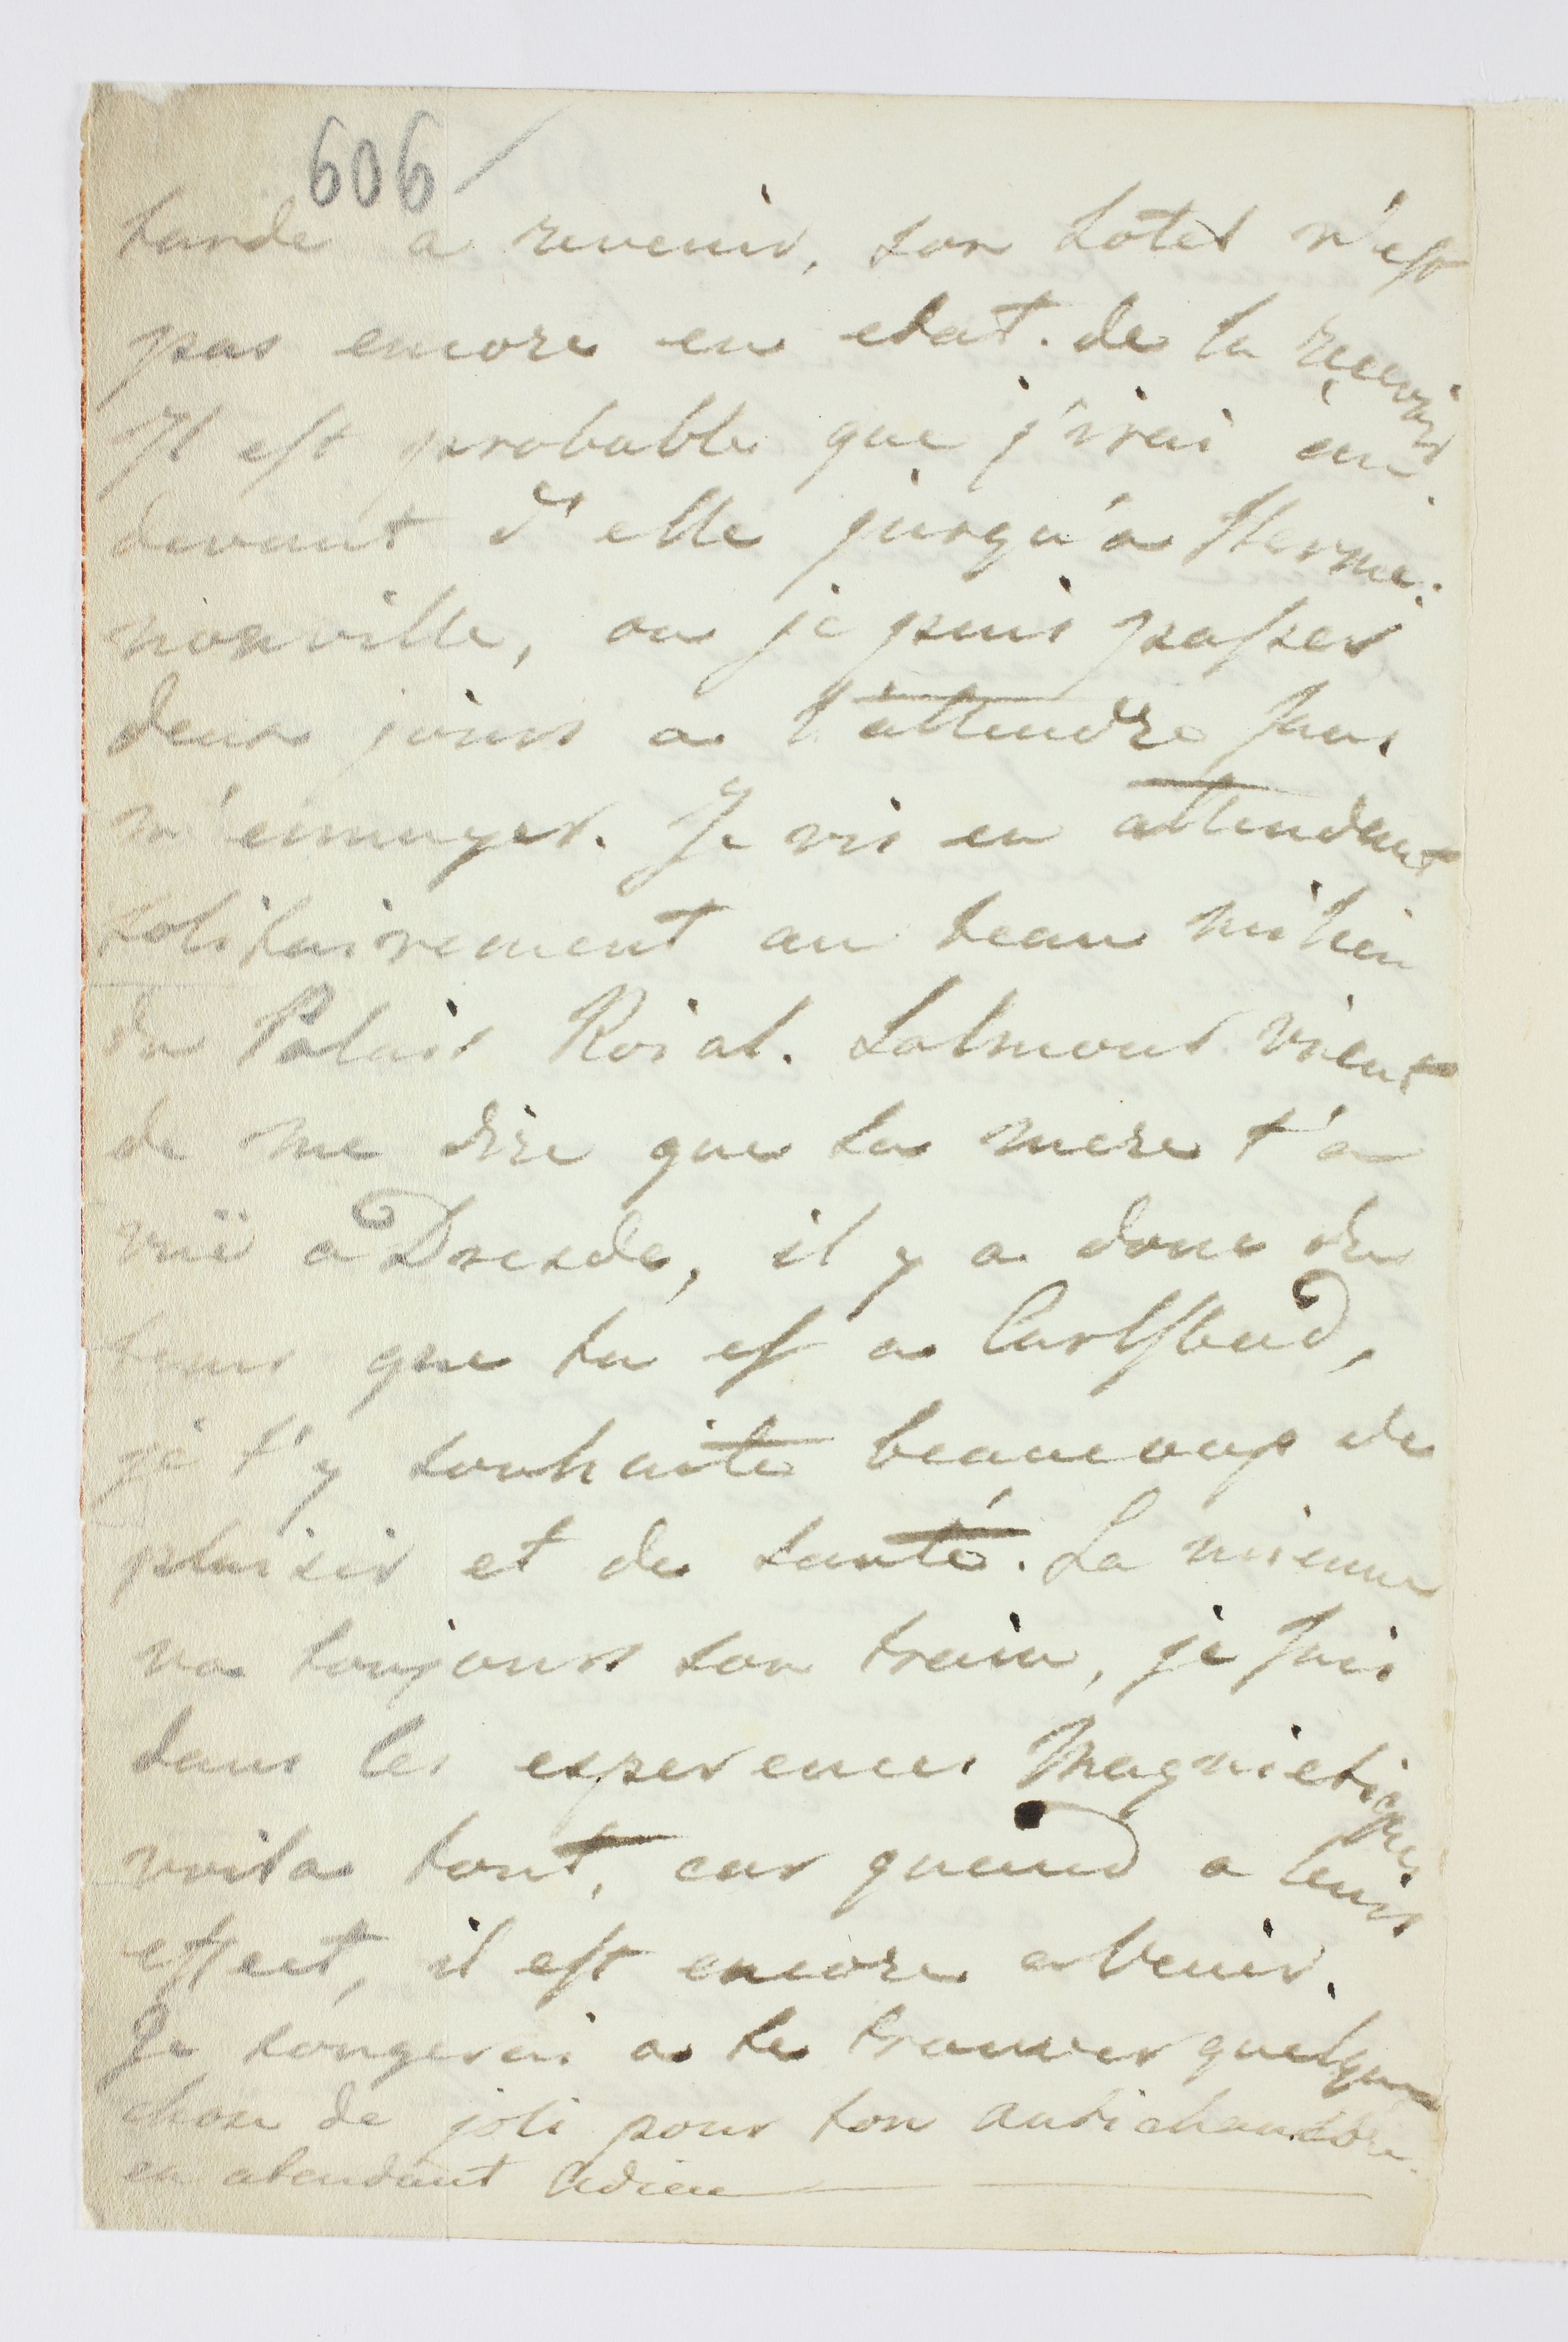 606/
tarde a revenir, son hotel n'est
pas encore en etat de la recevoir
Il est probable que j'irai au
devant d'elle jusqu'a Herme.
nonville, ou je puis passer
deux jours a l'attendre sans
m'ennuyer. Je vis en attendant
solitairement au beau milieu
du Palais Roial. Salmour vient
de me dire que sa mere t'a
vuë a Dresde, il y a donc du
tems que tu es a Carlsbad,
je t'y souhaite beaucoup de
plaisir et de santé. La mienne
va toujours son train, je suis
dans les experences Magnietiques
voila tout, car quand a leurs
effect, il est encore a Venir.
Je songerai a te trouver quelque
chose de joli pour ton antichambre.
en atendant Adieu